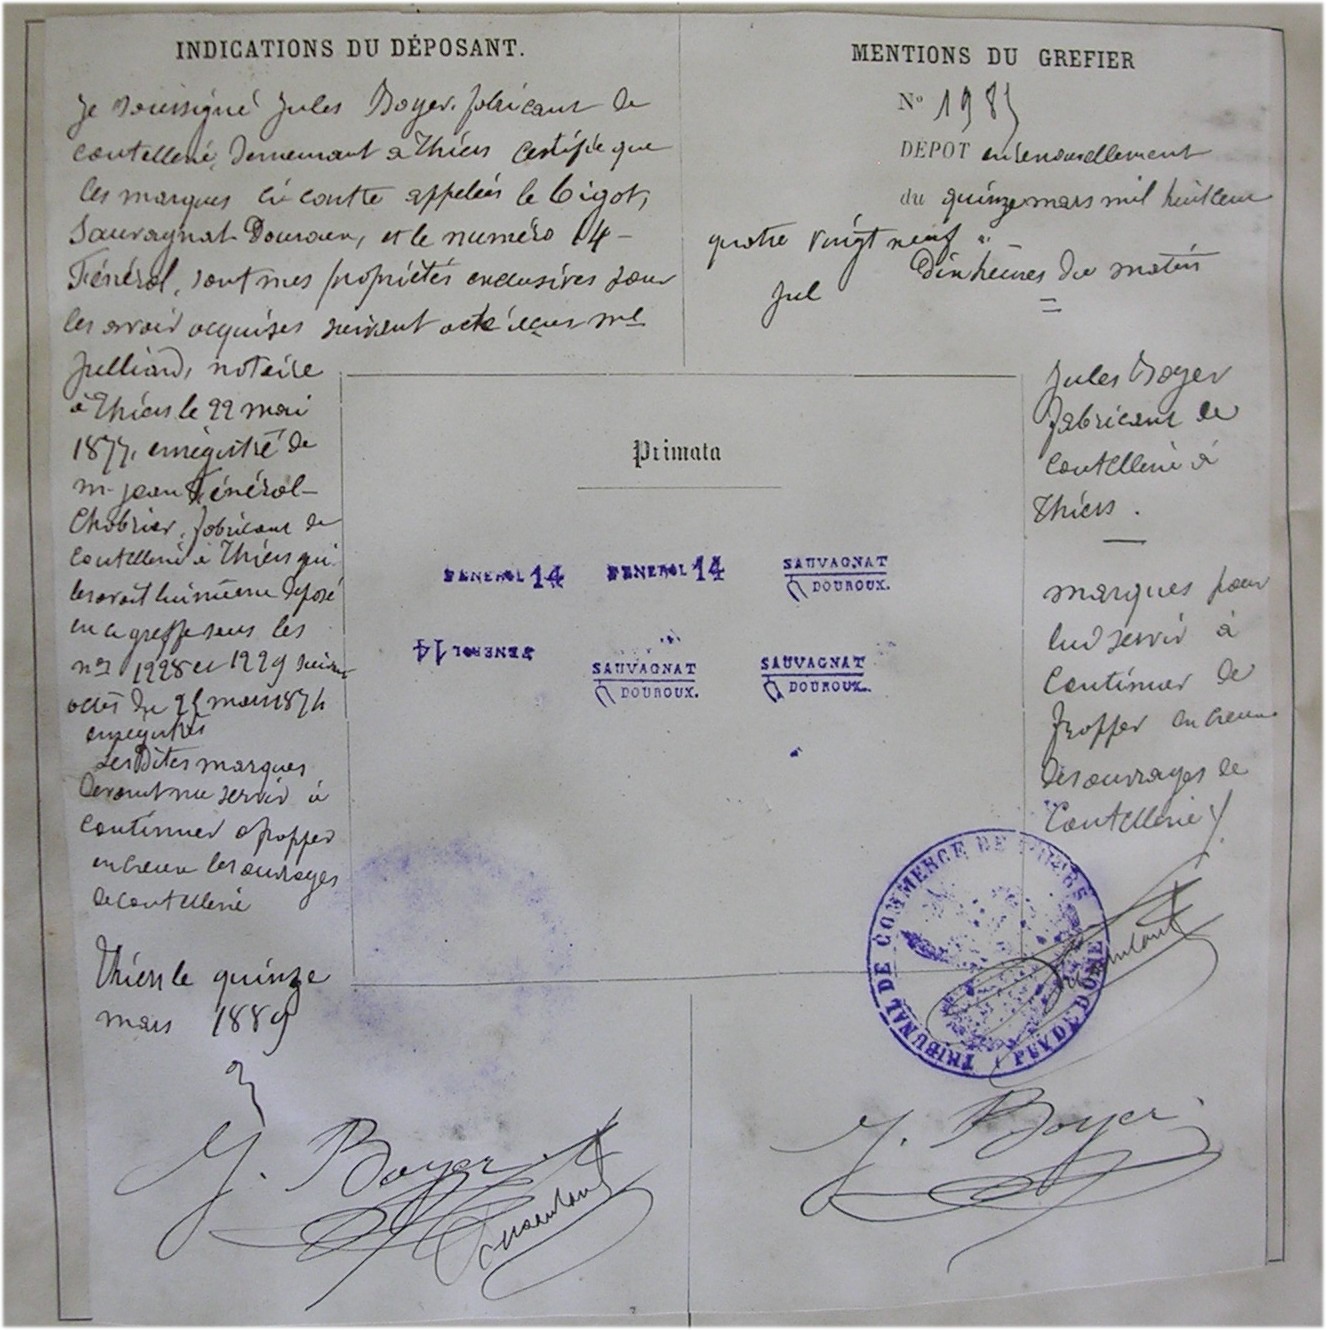 INDICATIONS DU DÉPOSANT.
Je soussigné Jules Boyer, fabricant de
coutellerie, demeurant à Thiers certifie que
les marques ci contre appelées le Gigot,
Sauvagnat Douroux, et le numéro 14
Fénérol, sont mes propriétés exclusives pour
les avoir acquises suivant acte reçu me
Julliard, notaire
à Thiers le 22 mai
1877, enregistré de
m. jean Fénérol
Chabrier, fabricant de
coutellerie à Thiers qui
les avait lui même déposé
en ce greffe sous les
nos 1228 et 1229 suivant
actes de mars 1874
enregistrés
Les dites marques
devant me servir à
continuer à frapper
en creux les ouvrages
de coutellerie
Thiers le quinze
mars 1889
J. Boyer
MENTIONS DU GREFIER
No 1985
DÉPOT en renouvellement
du quinze mars mil huit cent
quatre vingt neuf
Dix heures du matin
Jul
Jules Boyer
fabricant de
coutellerie à
Thiers.
marques pour
lui servir à
continuer de
frapper en creux
des ouvrages de
coutellerie
Primata
FENEROL 14 FENEROL 14 SAUVAGNAT
DOUROUX.
FENEROL 14 SAUVAGNAT SAUVAGNAT
DOUROUX. DOUROUX.
TRIBUNAL DE COMMERCE DE THIERS
PUY DE DOME
J. Boyer